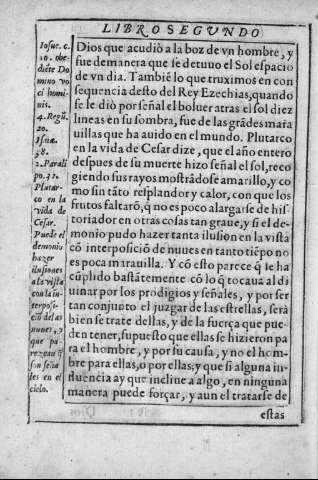 LIBRO SEGVNDO
Iosue. c.
10. obe-
diẽte Do
mino vo
ci homi-
nis.
4. Regũ.
20.
Isaiæ.
38.
2. Parali
po. 32.
Plutar-
co en la
vida de
Cesar.
Puede el
demonio
hazer
ilusiones
a la vista
con la in-
terposi-
ciõ de las
nuues, y
que pa-
rezcan q̃
son seña
les en el
cielo.
Dios que acudiò a la boz de vn hombre, y
fue de manera que se detuuo el Sol espacio
de vn dia. Tambiẽ lo que truximos en con
sequencia desto del Rey Ezechias, quando
se le diò por señal el boluer atras el sol diez
lineas en su sombra, fue de las grãdes mara
uillas que ha auido en el mundo. Plutarco
en la vida de Cesar dize, que el año entero
despues de su muerte hizo señal el sol, reco
giendo sus rayos mostrãdose amarillo, y co
mo sin tãto resplandor y calor, con que los
frutos faltarõ, q̃ no es poco alargarse de his-
toriador en otras cosas tan graue, y si el de-
monio pudo hazer tanta ilusion en la vista
cõ interposiciõ de nuues en tanto tiẽpo no
es poca marauilla. Y cõ esto parece q̃ se ha
cũplido bastãtemente cõ lo q̃ tocaua al di
uinar por los prodigios y señales, y por ser
tan conjunto el juzgar de las estrellas, serà
bien se trate dellas, y de la fuerça que pue-
den tener, supuesto que ellas se hizieron pa
ra el hombre, y por su causa, y no el hom-
bre para ellas, o por ellas, y que si alguna in-
fluencia ay que incline a algo, en ninguna
manera puede forçar, y aun el tratarse de
estas